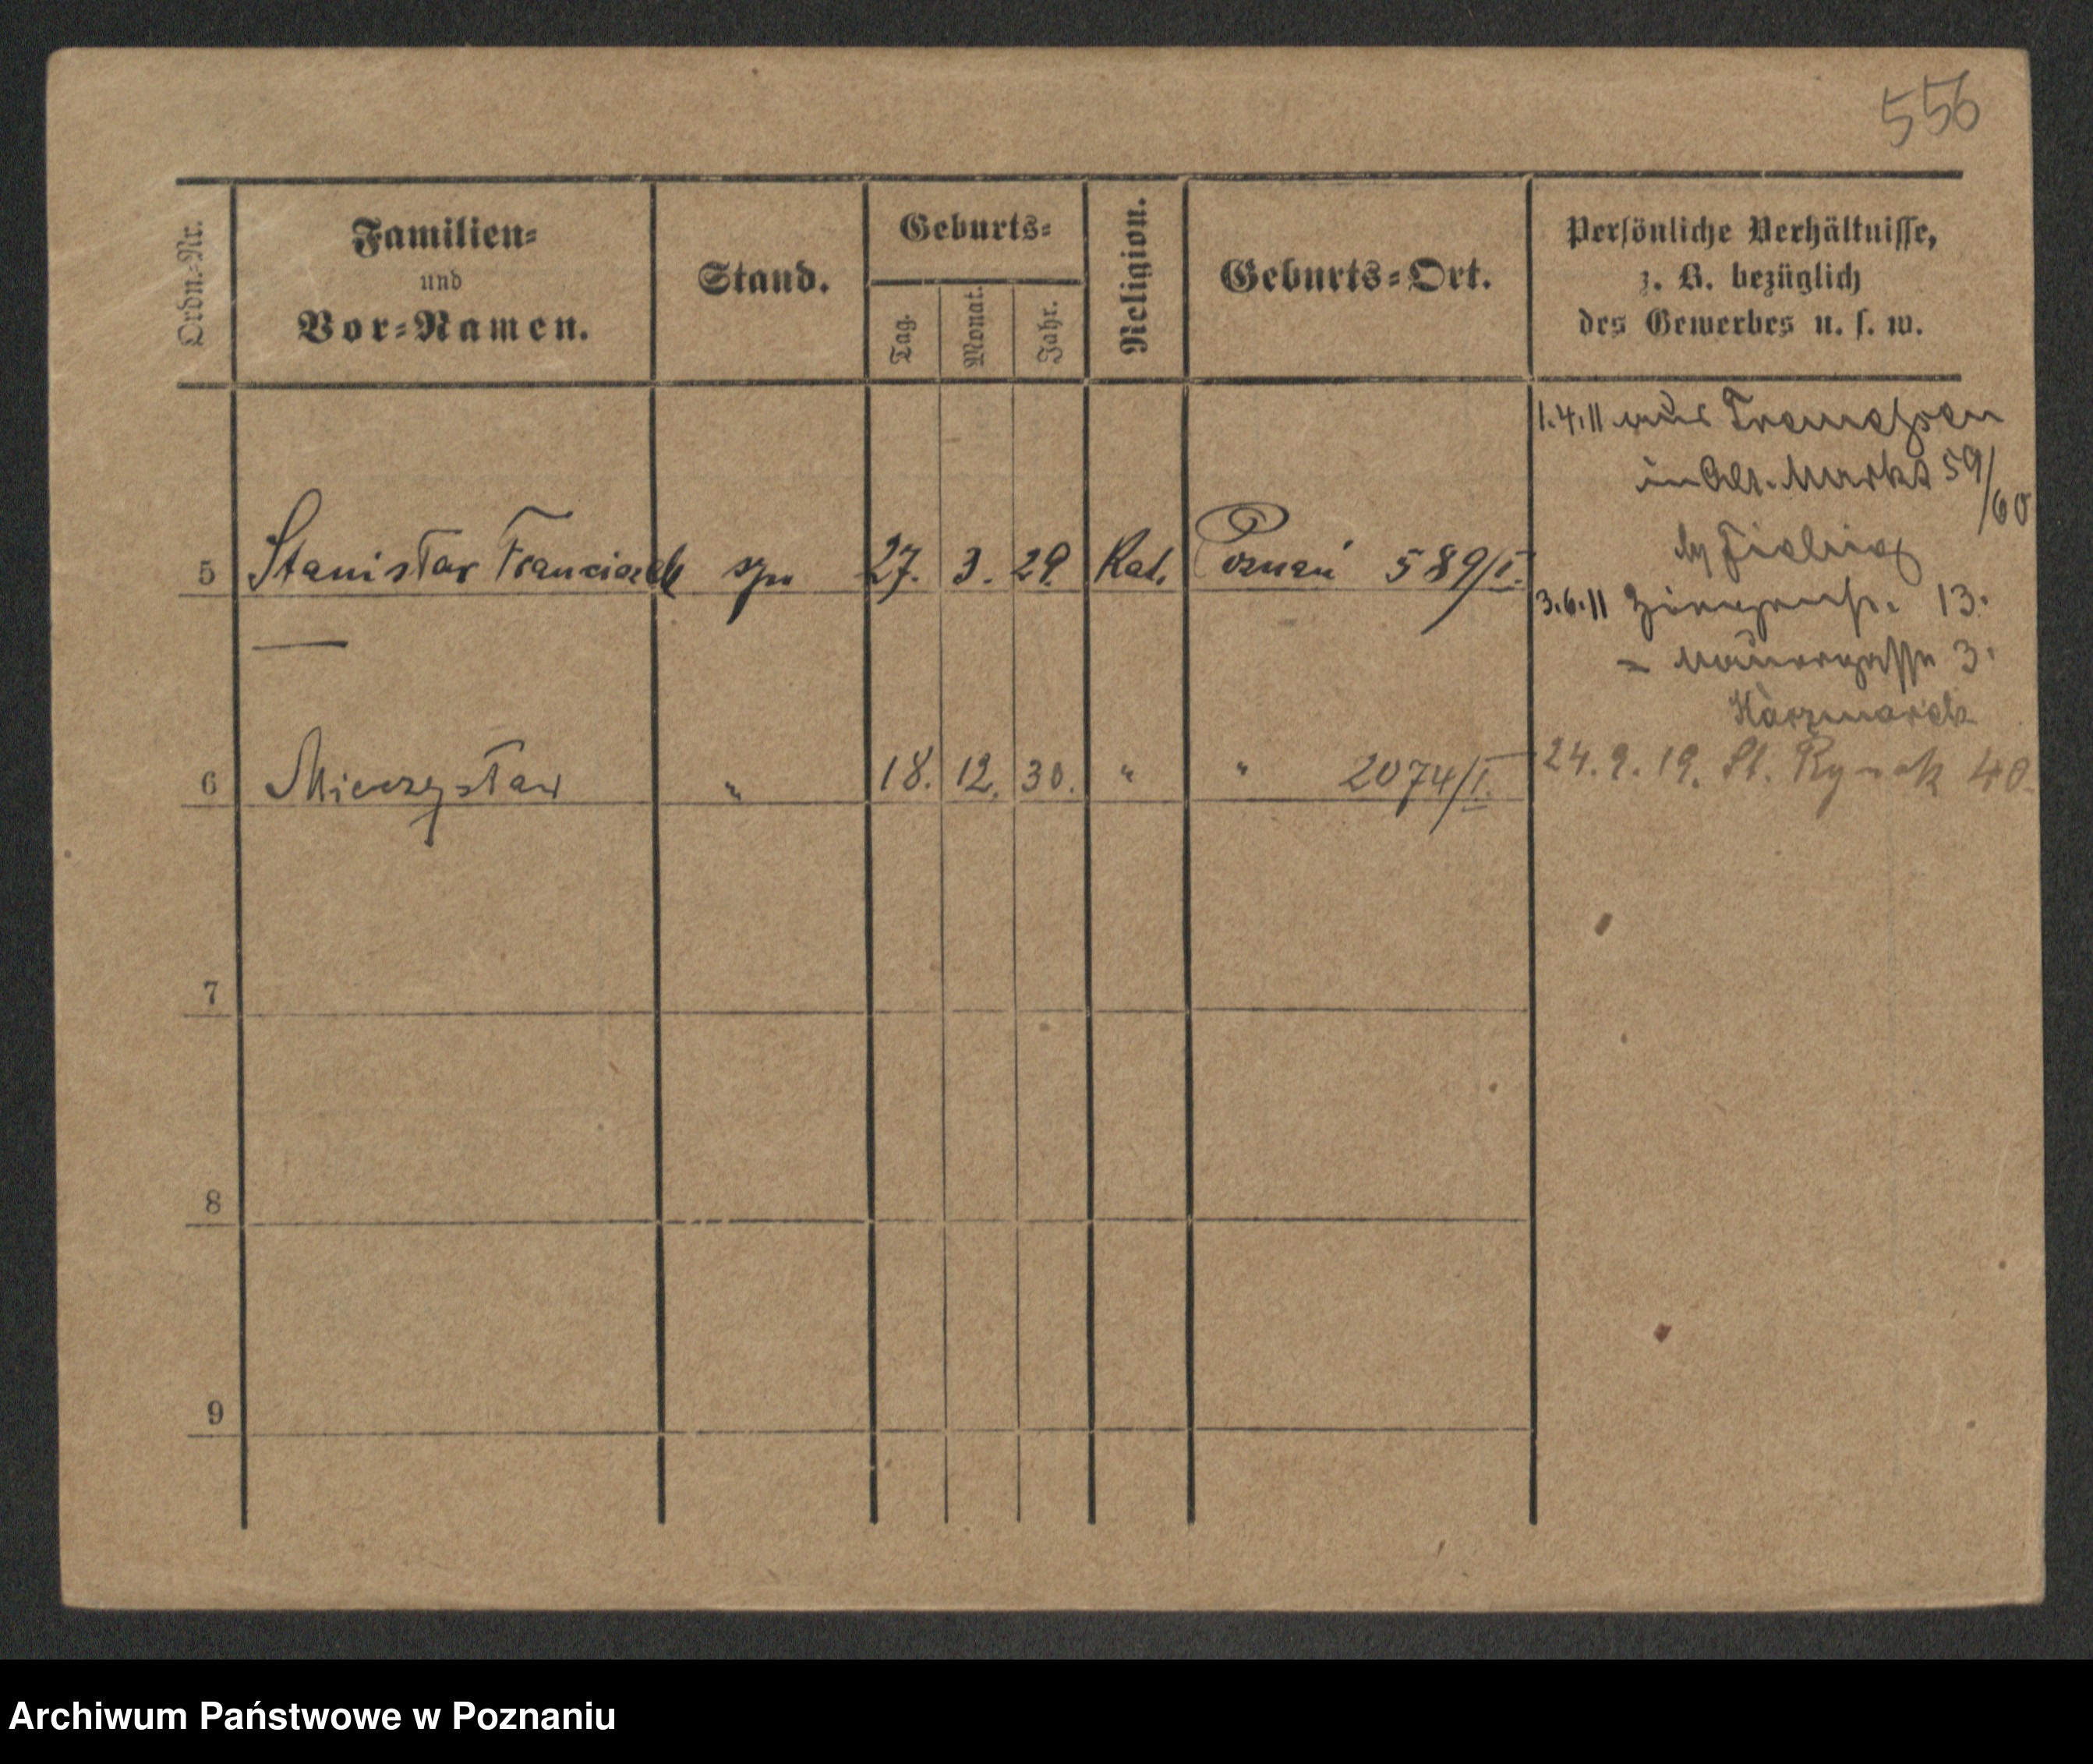 556
Ordn.-Nr.
Familien-
und
Vor-Namen.
Stand.
Geburts-
Tag.
Monat.
Jahr.
Religion.
Geburts-Ort.
Persönliche Verhältnisse,
z. B. bezüglich
des Gewerbes u. s. w.
1.4.11 aus
in Alt. Markt 59/60
5 Stanisław Franciszek syn 27. 3. 29. Kat. Poznań 589/I.
3.6.11 13.
= Mauergasse 3.
Kaczmarek
6 Mieczysław " 18. 12. 30. " " 2074/I.
24.9.19. St. Rynek 40.
7
8
9
Archiwum Państwowe w Poznaniu